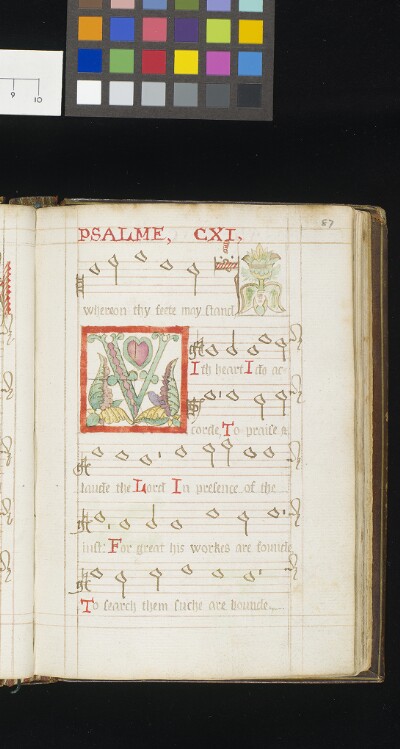 9 10
87
PSALME, CXI,
whereon thy feete may stand
With heart I do ac-
corde, To praise &
laude the Lord In presence of the
iust: For great his workes are founde
To search them suche are bounde.